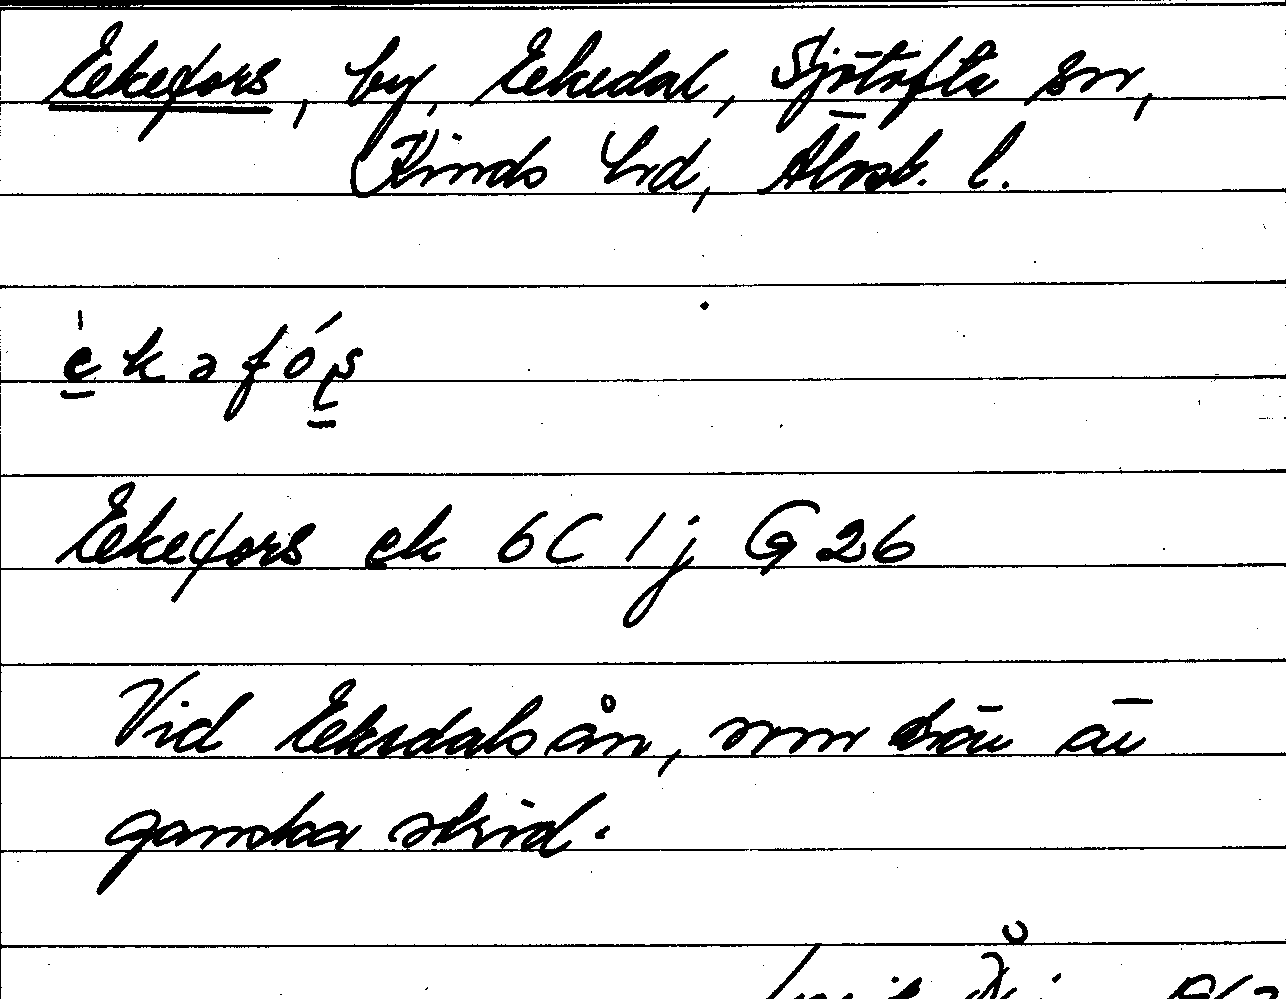 Ekefors, by, Ekedal, Sjötofta sn,
Kinds hd, Älvsb. l.
ekəfórs
Ekefors ek 6C 1j G 26
Vid Ekedalsån, som här är
ganska strid.